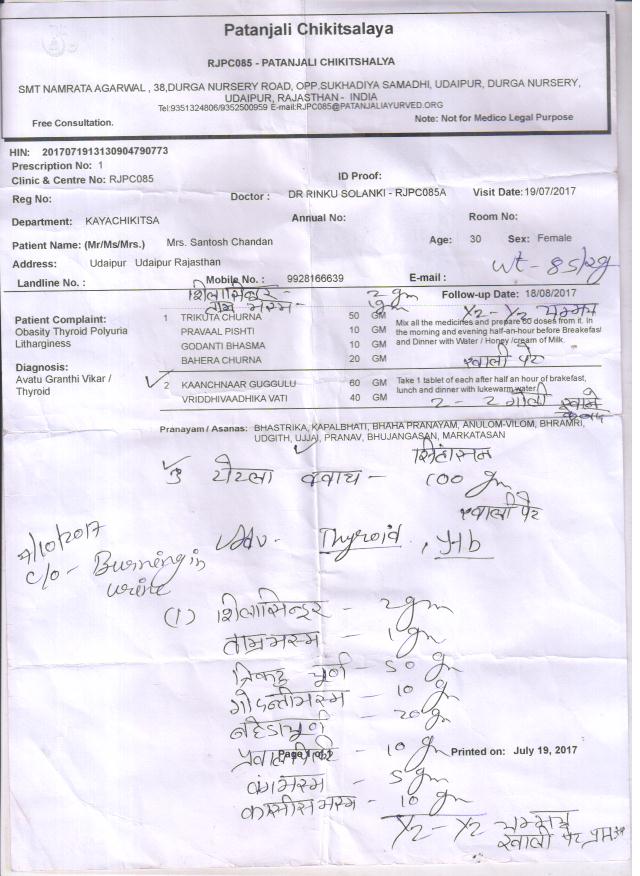 Patanjali Chikitsalaya
RJPC085 - PATANJALI CHIKITSHALYA
SMT NAMRATA AGARWAL , 38,DURGA NURSERY ROAD, OPP.SUKHADIYA SAMADHI, UDAIPUR, DURGA NURSERY,
UDAIPUR, RAJASTHAN - INDIA
Tel:9351324806/9352500959 E-mail:RJPC085@PATANJALIAYURVED.ORG
Free Consultation. Note: Not for Medico Legal Purpose
HIN: 2017071913130904790773
Prescription No: 1
Clinic & Centre No: RJPC085 ID Proof:
Reg No: Doctor : DR RINKU SOLANKI - RJPC085A Visit Date: 19/07/2017
Department: KAYACHIKITSA Annual No: Room No:
Patient Name: (Mr/Ms/Mrs.) Mrs. Santosh Chandan Age: 30 Sex: Female
Address: Udaipur Udaipur Rajasthan wt - 85kg
Landline No. : Mobile No. : 9928166639 E-mail :
शिलासिन्दूर - 2 gm Follow-up Date: 18/08/2017
ताम्र भस्म - 1 gm ½ - ½ चम्मच
Patient Complaint: 1 TRIKUTA CHURNA 50 GM Mix all the medicines and prepare 60 doses from it. In
Obasity Thyroid Polyuria PRAVAAL PISHTI 10 GM the morning and evening half-an-hour before Breakefast
Litharginess GODANTI BHASMA 10 GM and Dinner with Water / Honey /cream of Milk.
BAHERA CHURNA 20 GM खाली पेट
Diagnosis:
Avatu Granthi Vikar / 2 KAANCHNAAR GUGGULU 60 GM Take 1 tablet of each after half an hour of brakefast,
Thyroid VRIDDHIVAADHIKA VATI 40 GM lunch and dinner with lukewarm water.
2 - 2 गोली खाने के बाद
Pranayam / Asanas: BHASTRIKA, KAPALBHATI, BHAHA PRANAYAM, ANULOM-VILOM, BHRAMRI,
UDGITH, UJJAI, PRANAV, BHUJANGASAN, MARKATASAN
सिंहासन
3 क्वाथ - 100 gm
खाली पेट
Adv - Thyroid , Hb
7/10/2017
c/o - Burning in
urine
(1) शिलासिन्दूर - 2 gm
ताम्र भस्म - 1 gm
त्रिकटु चूर्ण - 50 gm
गोदन्ती भस्म - 10 gm
बहेडा चूर्ण - 20 gm
प्रवाल पिष्टी - 10 gm
Page 1 of 1 Printed on: July 19, 2017
वंग भस्म - 5 gm
कासीस भस्म - 10 gm
½ - ½ चम्मच
खाली पेट